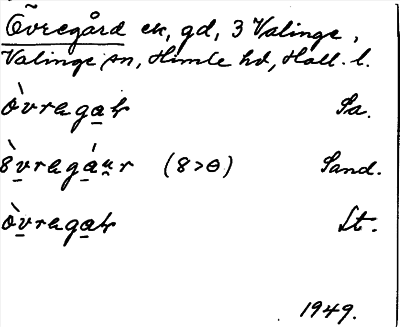 Övregård ek, gd, 3 Valinge,
Valinge sn, Himle hd, Hall. l.
òvregaʈ Sa.
8vregáu̯r (8>ɵ) Sand.
òvregaʈ Lt.
1949.